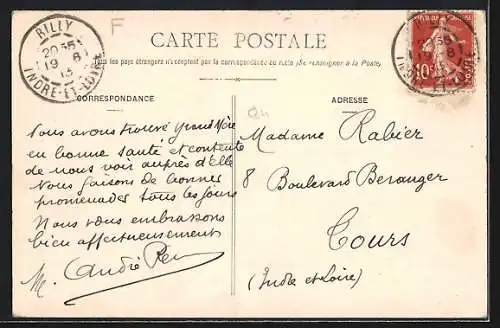 RILLY
20 55
19 - 8
13
INDRE-ET-LOIRE
F
CARTE POSTALE
Tous les pays étrangers n'acceptent pas la correspondance au recto (Se renseigner à la Poste).
CORRESPONDANCE
Nous avons trouvé grand'Mère
en bonne santé et contente
de nous voir auprès d'Elle
Nous faisons de bonnes
promenades tous les jours
Nous vous embrassons
bien affectueusement
M. André
ADRESSE
Madame Rabier
8 Boulevard Beranger
Tours
(Indre et Loire)
10
POSTES